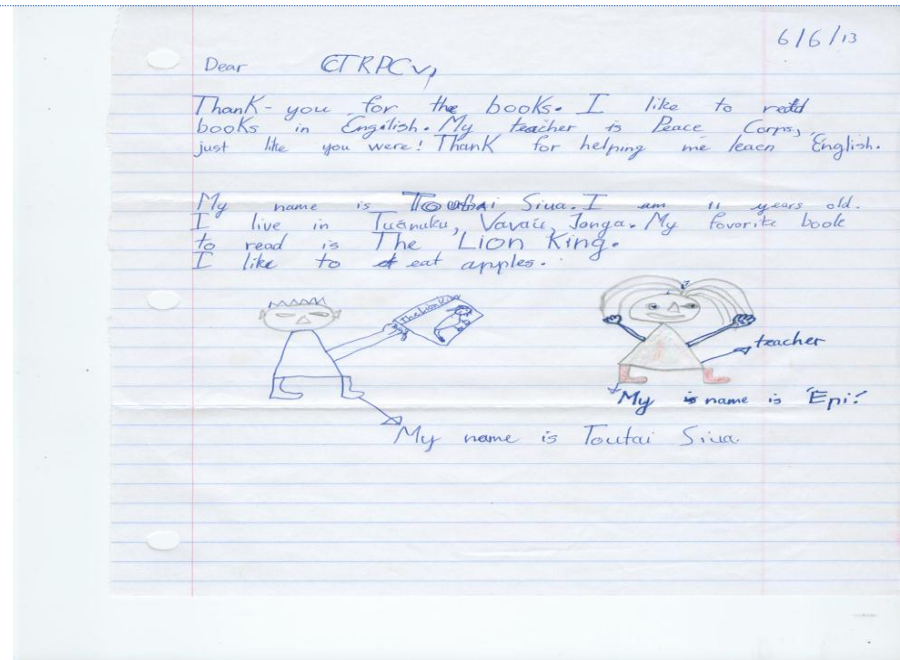 6/6/13
Dear CTRPCV,
Thank-you for the books. I like to read
books in Engilish. My teacher is Peace Corps,
just like you were! Thank for helping me learn English.
My name is Toutai Siua. I am 11 years old.
I live in Tu'anuku, Vava'u, Tonga. My favorite book
to read is The Lion King.
I like to eat apples.
The Lion King
teacher
My is name is 'Epi!
My name is Toutai Siua.